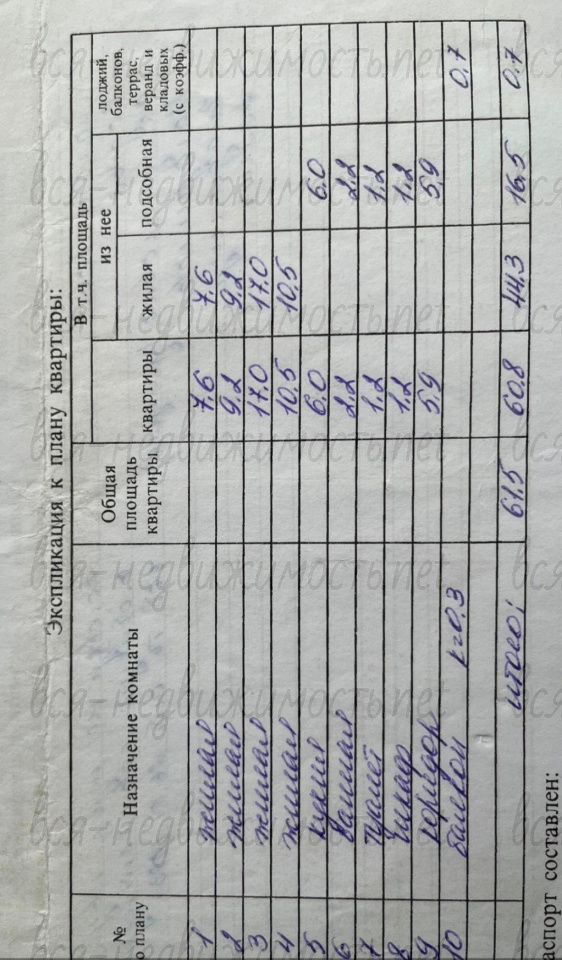 Экспликация к плану квартиры:
№ о плану | Назначение комнаты | Общая площадь квартиры | В т.ч. площадь квартиры | из нее жилая | подсобная | лоджий, балконов, террас, веранд и кладовых (с коэфф.)
1 жилая 7,6 7,6
2 жилая 9,2 9,2
3 жилая 17,0 17,0
4 жилая 10,5 10,5
5 кухня 6,0 6,0
6 ванная 2,2 2,2
7 туалет 1,2 1,2
8 шкаф 1,2 1,2
9 коридор 5,9 5,9
10 балкон k=0,3 0,7
итого: 61,5 60,8 44,3 16,5 0,7
аспорт составлен:
вся-недвижимость.net